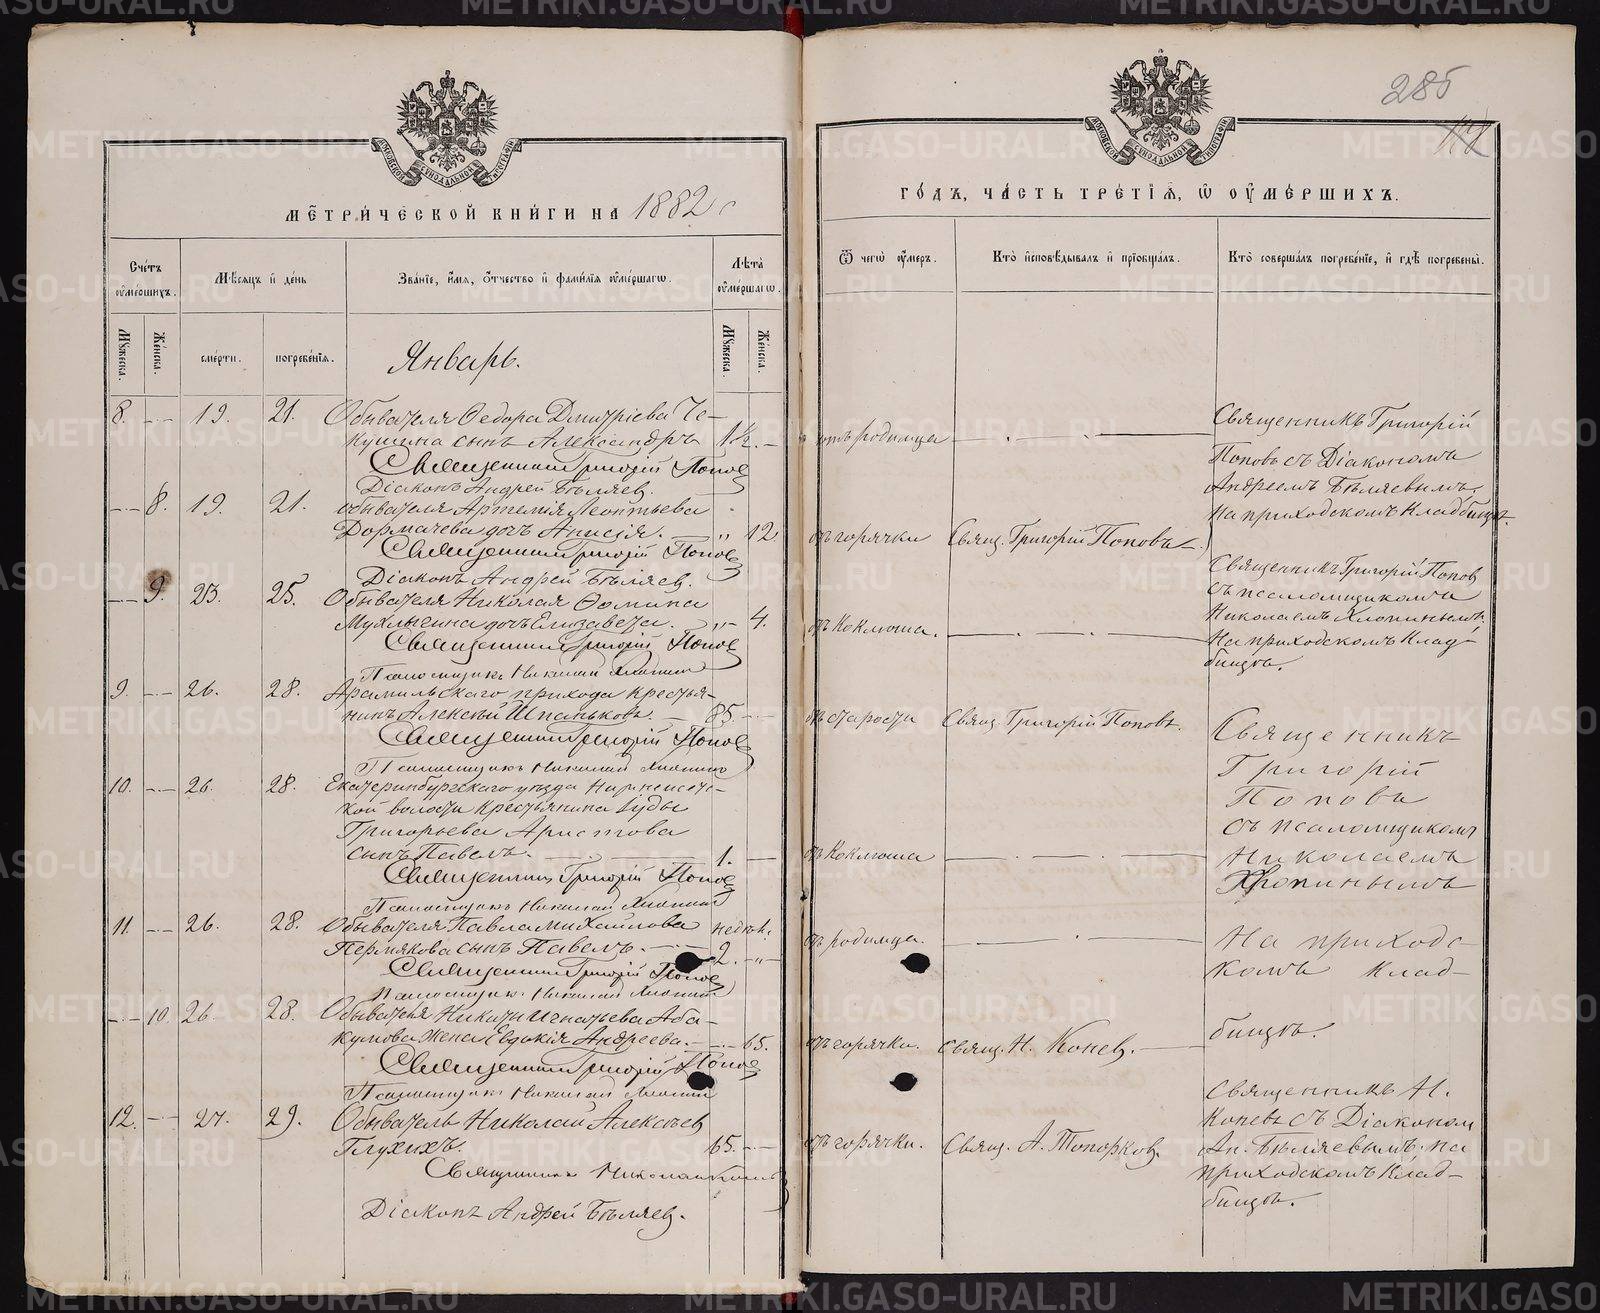 МЕТРИ́ЧЕСКОЙ КНИ́ГИ НА 1882 г
Сче́тъ оу҆ме́ршихъ.
Мѣ́сяцъ и҆ де́нь
Зва́нїе, и҆́мя, ѻ҆́тчество и҆ фами́лїя оу҆ме́ршагѡ.
Лѣ́та оу҆ме́ршагѡ.
Мꙋ́жеска.
Же́нска.
сме́рти.
погребе́нїя.
Мꙋ́жеска.
Же́нска.
Январь.
8. 19. 21. Обывателя Ѳедора Дмитріева Че-
кушина сынъ Александръ 1½.
Священникъ Григорій Попов
Діаконъ Андрей Бѣляев.
8. 19. 21. обывателя Артемія Леонтьева
Дормачева дочь Анисія. „ 12.
Священникъ Григорій Попов
Діаконъ Андрей Бѣляев.
9. 23. 25. Обывателя Николая Ѳомина
Мухлынина дочь Елизавета. „ 4.
Священникъ Григорій Попов
Псаломщикъ Николай Хлопин
9. 26. 28. Арамильскаго прихода крестья-
нинъ Алексѣй Шпаньковъ. 85.
Священникъ Григорій Попов
Псаломщикъ Николай Хлопин
10. 26. 28. Екатеринбургскаго уѣзда
кой волости крестьянина Іуды
Григорьева Аристова
сынъ Павелъ. 1.
Священникъ Григорій Попов
Псаломщикъ Николай Хлопин
11. 26. 28. Обывателя Павла Михайлова недѣль.
Пермякова сынъ Павелъ. 2. „
Священникъ Григорій Попов
Псаломщик. Николай Хлопин
10. 26. 28. Обывателя Никиты Игнатьева Аба-
кумова жена Евдокія Андреева. 65.
Священникъ Григорій Попов
Псаломщикъ Николай Хлопин
12. 27. 29. Обыватель Николай Алексѣев
Глухихъ. 65.
Священникъ Николай Конев
Діаконъ Андрей Бѣляев.
285
ГО́ДЪ, ЧА́СТЬ ТРЕ́ТЇЯ, Ѡ҆ ОУ҆МЕ́РШИХЪ.
Ѿ чегѡ̀ оу҆́меръ.
Кто̀ и҆сповѣ́дывалъ и҆ прїобща́лъ.
Кто̀ соверша́лъ погребе́нїе, и҆ гдѣ̀ погребены̀.
отъ родимца
Священникъ Григорій
Поповъ съ Діакономъ
Андреемъ Бѣляевымъ.
На приходскомъ кладбищѣ.
отъ горячки Свящ. Григорій Поповъ
Священникъ Григорій Попов
съ псаломщикомъ
Николаемъ Хлопинымъ.
На приходскомъ клад-
бищѣ.
отъ коклюша.
отъ старости Свящ. Григорій Поповъ.
Священникъ
Григорій
Поповъ
съ псаломщикомъ
Николаемъ
Хлопинымъ
отъ коклюша
отъ родимца.
На приходс-
комъ клад-
бищѣ.
отъ горячки. Свящ. Н. Конев.
Священникъ Н.
Коневъ съ Діаконом
Ан. Бѣляевымъ. на
приходскомъ клад-
бищѣ.
отъ горячки. Свящ. А. Топорков.
METRIKI.GASO-URAL.RU